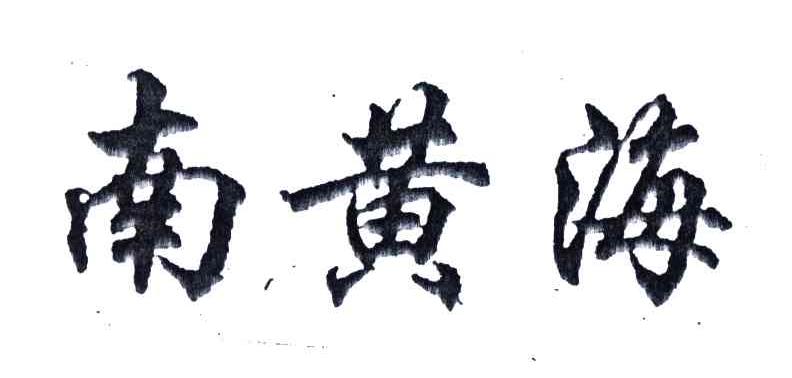 南黄海